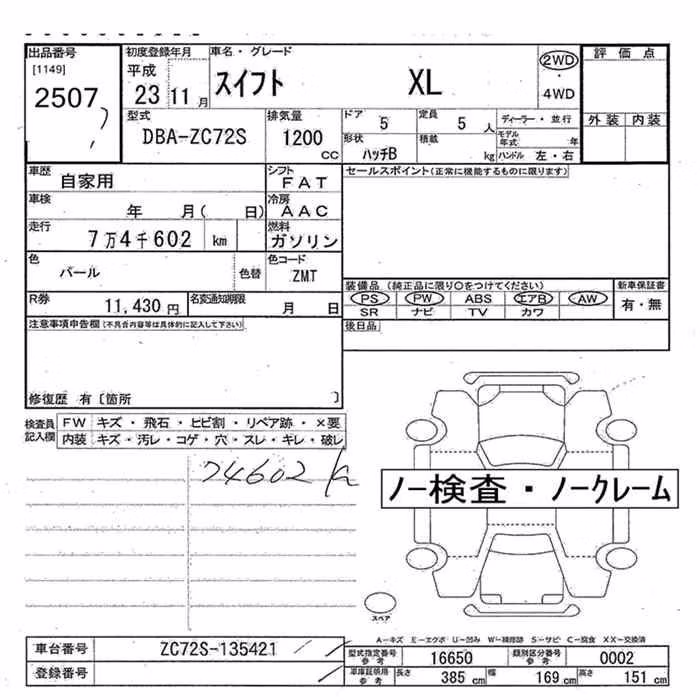 出品番号
[1149]
2507
初度登録年月
平成
23 11 月
車名・グレード
スイフト XL
2WD
・
4WD
評価点
外装 内装
型式
DBA-ZC72S
排気量
1200
CC
ドア
5
定員
5 人
ディーラー・並行
モデル年式 年
形状
ハッチB
積載
kg
ハンドル 左・右
車歴
自家用
シフト
FAT
セールスポイント(正常に機能するものに限ります)
車検
年 月( 日)
冷房
AAC
走行
7万4千602 km
燃料
ガソリン
色
パール
色替
色コード
ZMT
装備品(純正品に限り○をつけてください)
新車保証書
PS PW ABS エアB AW
有・無
SR ナビ TV カワ
R券
11,430 円
名変通知期限
月 日
後日品
注意事項申告欄(不具合内容等は具体的に記入して下さい)
修復歴 有〔箇所 〕
検査員記入欄
FW キズ・飛石・ヒビ割・リペア跡・×要
内装 キズ・汚レ・コゲ・穴・スレ・キレ・破レ
74602 k
ノー検査・ノークレーム
スペア
A-キズ E-エクボ U-凹み W-補修跡 S-サビ C-腐食 XX-交換済
車台番号
ZC72S-135421
登録番号
型式指定番号 参考
16650
類別区分番号 参考
0002
車庫証明用 参考
長さ 385 cm 幅 169 cm 高さ 151 cm